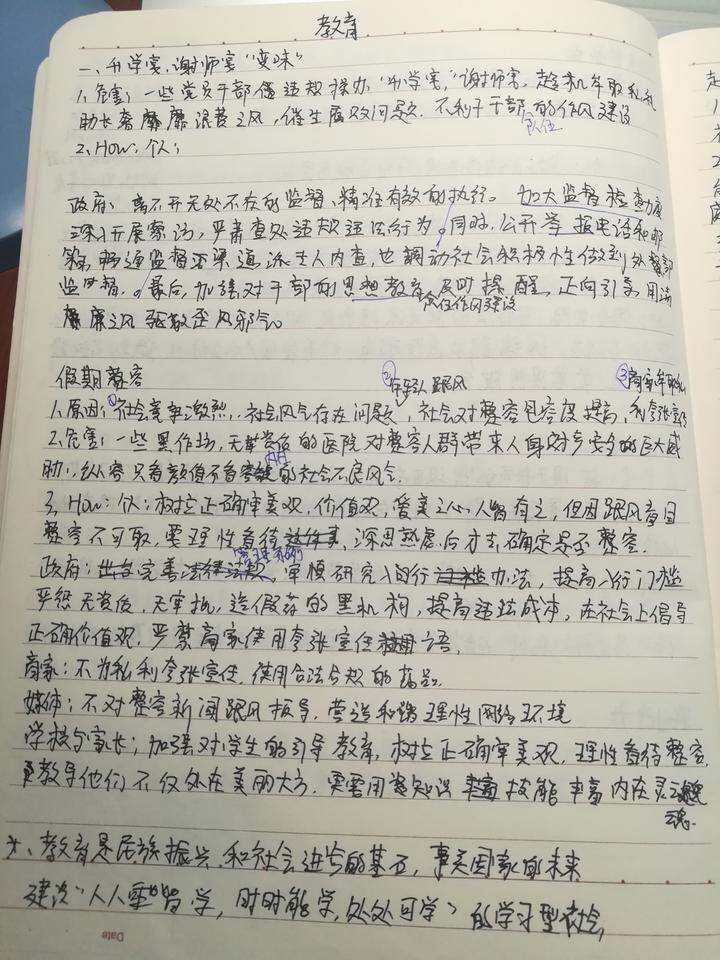 教育
一、升学宴、谢师宴"变味"
1、危害:一些党员干部 违规操办"升学宴","谢师宴,趁机牟取私礼
助长奢靡 浪费之风,催生腐败问题。不利于干部队伍的作风建设
2、How:个人:
政府:离不开无处不在的监督、精准有效的执行。加大监督检查力度
深入开展察访,严肃查处违规违法行为。同时,公开举报电话和邮
箱,畅通监督 渠道 派专人内查,也调动社会积极性做到外部
监督。最后,加强对干部的思想教育 及时提醒,正向引导,用清
廉之风驱散歪风邪气。
假期整容 ②年轻人跟风 ③商家牟取私利夸张宣传
1、原因:①社会竞争激烈,社会风气存在问题,社会对整容包容度提高,
2、危害:一些黑作坊,无资质的医院对整容人群带来人身财产安全的巨大威
胁,纵容只看颜值不看内在的社会不良风气.
3、How:个人:树立正确审美观,价值观,爱美之心人皆有之,但因跟风盲目
整容不可取,要理性看待,深思熟虑后才去确定是否整容.
政府:完善管理 审慎研究入行办法,提高入行门槛
严惩无资质,无审批,造假药的黑机构,提高违法成本,在社会上倡导
正确价值观,严禁商家使用夸张宣传用语.
商家:不为私利夸张宣传,使用合法合规的药品.
媒体:不对整容新闻跟风报导,营造和谐理性网络环境
学校与家长:加强对学生的引导教育,树立正确审美观,理性看待整容.
教导他们不仅外在美丽大方,更需用知识 技能丰富内在灵魂.
*、教育是民族振兴和社会进步的基石,事关国家的未来
建设"人人皆学,时时能学,处处可学"的学习型社会,
Date